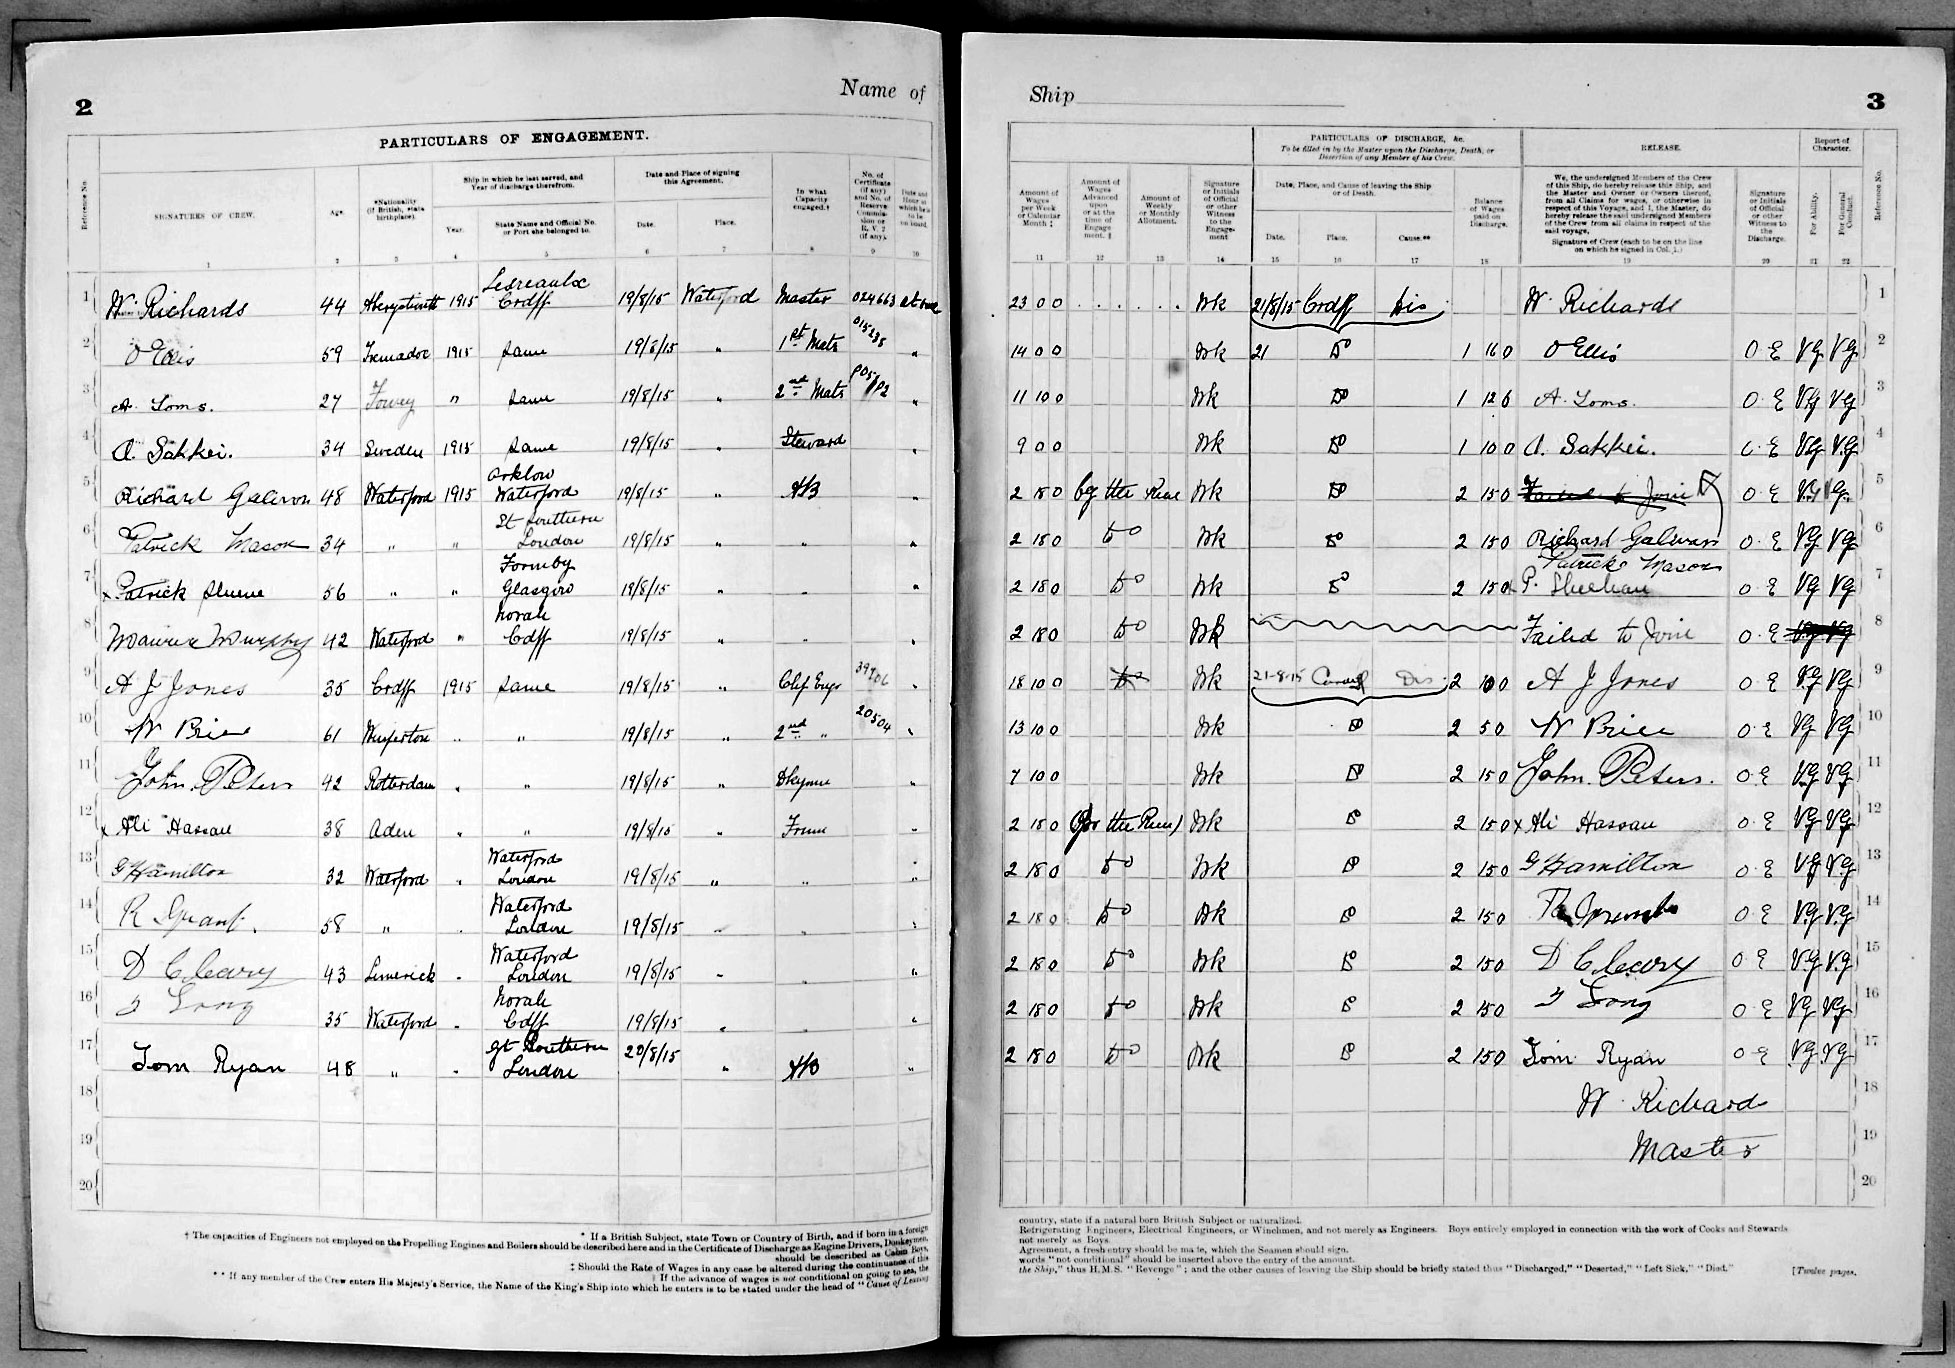 2
Name of
PARTICULARS OF ENGAGEMENT.
Reference No.
SIGNATURES OF CREW.
Age.
*Nationality (If British, state birthplace).
Ship in which he last served, and Year of discharge therefrom.
Year.
State Name and Official No. or Port she belonged to.
Date and Place of signing this Agreement.
Date.
Place.
In what Capacity engaged.†
No. of Certificate (if any) and No. of Reserve Commission or R. V. 2 (if any).
Date and Hour at which he is to be on board.
1 2 3 4 5 6 7 8 9 10
1 W. Richards 44 Aberystwith 1915 Cdff 19/8/15 Waterford Master 024663 at once
2 O Ellis 59 Tremadoc 1915 Same 19/8/15 " 1st Mate 015235 "
3 A. Toms. 27 Fowey " Same 19/8/15 " 2nd Mate "
4 A. Sakkei. 34 Sweden 1915 Same 19/8/15 " Steward "
Arklow
5 Richard Galavan 48 Waterford 1915 Waterford 19/8/15 " AB "
Gt Southern
6 Patrick Mason 34 " " London 19/8/15 " " "
Formby
7 x Patrick 56 " " Glasgow 19/8/15 " " "
Norah
8 Maurice Murphy 42 Waterford " Cdff 19/8/15 " " "
9 A J Jones 35 Cdff 1915 Same 19/8/15 " Chf Engr "
10 W Price 61 " " 19/8/15 " 2nd " 20504 "
11 John Peters 42 Rotterdam " " 19/8/15 " Dkyman "
12 x Ali Hassan 38 Aden " " 19/8/15 " Frmn "
Waterford
13 G Hamilton 32 Waterford " London 19/8/15 " " "
Waterford
14 R Grant. 58 " " London 19/8/15 " " "
Waterford
15 D Cleary 43 Limerick " London 19/8/15 " " "
Norah
16 Long 35 Waterford " Cdff 19/8/15 " " "
Gt Southern
17 Tom Ryan 48 " " London 20/8/15 " AB "
18
19
20
* If a British Subject, state Town or Country of Birth, and if born in a foreign
† The capacities of Engineers not employed on the Propelling Engines and Boilers should be described here and in the Certificate of Discharge as Engine Drivers, Donkeymen,
should be described as Cabin Boys,
‡ Should the Rate of Wages in any case be altered during the continuance of this
§ If the advance of wages is not conditional on going to sea, the
** If any member of the Crew enters His Majesty's Service, the Name of the King's Ship into which he enters is to be stated under the head of "Cause of Leaving
Ship
3
PARTICULARS OF DISCHARGE, &c.
To be filled in by the Master upon the Discharge, Death, or Desertion of any Member of his Crew.
RELEASE.
Report of Character.
Amount of Wages per Week or Calendar Month ‡
Amount of Wages Advanced upon or at the time of Engagement. ‡
Amount of Weekly or Monthly Allotment.
Signature or Initials of Official or other Witness to the Engagement
Date, Place, and Cause of leaving the Ship or of Death.
Date.
Place.
Cause.**
Balance of Wages paid on Discharge.
We, the undersigned Members of the Crew of this Ship, do hereby release this Ship, and the Master and Owner or Owners thereof, from all Claims for wages, or otherwise in respect of this Voyage, and I, the Master, do hereby release the said undersigned Members of the Crew from all claims in respect of the said voyage.
Signature of Crew (each to be on the line on which he signed in Col. 1.)
Signature or Initials of Official or other Witness to the Discharge.
For Ability.
For General Conduct.
Reference No.
11 12 13 14 15 16 17 18 19 20 21 22
23 0 0 Wk 21/8/15 Cdff Dis W. Richards 1
14 0 0 Wk 21 Do 1 16 0 O Ellis O. E VG VG 2
11 10 0 Wk Do 1 12 6 A. Toms. O. E VG VG 3
9 0 0 Wk Do 1 10 0 A. Sakkei. O. E VG VG 4
2 18 0 by the Run Wk Do 2 15 0 Failed to Join O. E VG VG 5
2 18 0 Do Wk Do 2 15 0 Richard Galavan O. E VG VG 6
Patrick Mason
2 18 0 Do Wk Do 2 15 0 x P. Sheehan O. E VG VG 7
2 18 0 Do Wk Failed to Join O. E VG VG 8
18 10 0 Do Wk 21-8-15 Cardiff Dis 2 10 0 A J Jones O. E VG VG 9
13 10 0 Wk Do 2 5 0 W Price O. E VG VG 10
7 10 0 Wk Do 2 15 0 John Peters. O. E VG VG 11
2 18 0 (for the Run) Wk Do 2 15 0 x Ali Hassan O. E VG VG 12
2 18 0 Do Wk Do 2 15 0 G Hamilton O. E VG VG 13
2 18 0 Do Wk Do 2 15 0 O E VG VG 14
2 18 0 Do Wk Do 2 15 0 D Cleary O E VG VG 15
2 18 0 Do Wk Do 2 15 0 Long O E VG VG 16
2 18 0 Do Wk Do 2 15 0 Tom Ryan O E VG VG 17
W. Richards 18
Master 19
20
country, state if a natural born British Subject or naturalized.
Refrigerating Engineers, Electrical Engineers, or Winchmen, and not merely as Engineers. Boys entirely employed in connection with the work of Cooks and Stewards
not merely as Boys.
Agreement, a fresh entry should be made, which the Seamen should sign.
words "not conditional" should be inserted above the entry of the amount.
the Ship," thus H.M.S. "Revenge"; and the other causes of leaving the Ship should be briefly stated thus "Discharged," "Deserted," "Left Sick," "Died."
[Twelve pages.